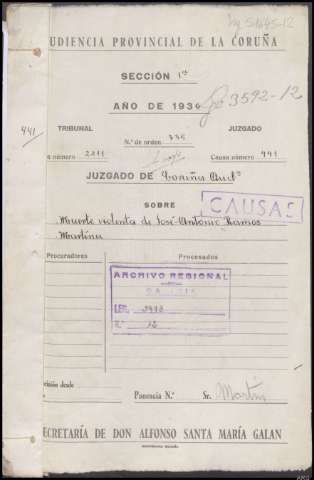 UDIENCIA PROVINCIAL DE LA CORUÑA
SECCIÓN 1ª
AÑO DE 1936
3592-12
441
TRIBUNAL
JUZGADO
N.º de orden
a número 2011
Causa número 441
JUZGADO DE Coruña Aud.ª
SOBRE
CAUSAS
Muerte violenta de José Antonio Ramos
Martínez
Procuradores
Procesados
ARCHIVO REGIONAL
GALICIA
LEG.
N.º 12
Ponencia N.º
Sr. Martín
ECRETARÍA DE DON ALFONSO SANTA MARÍA GALAN